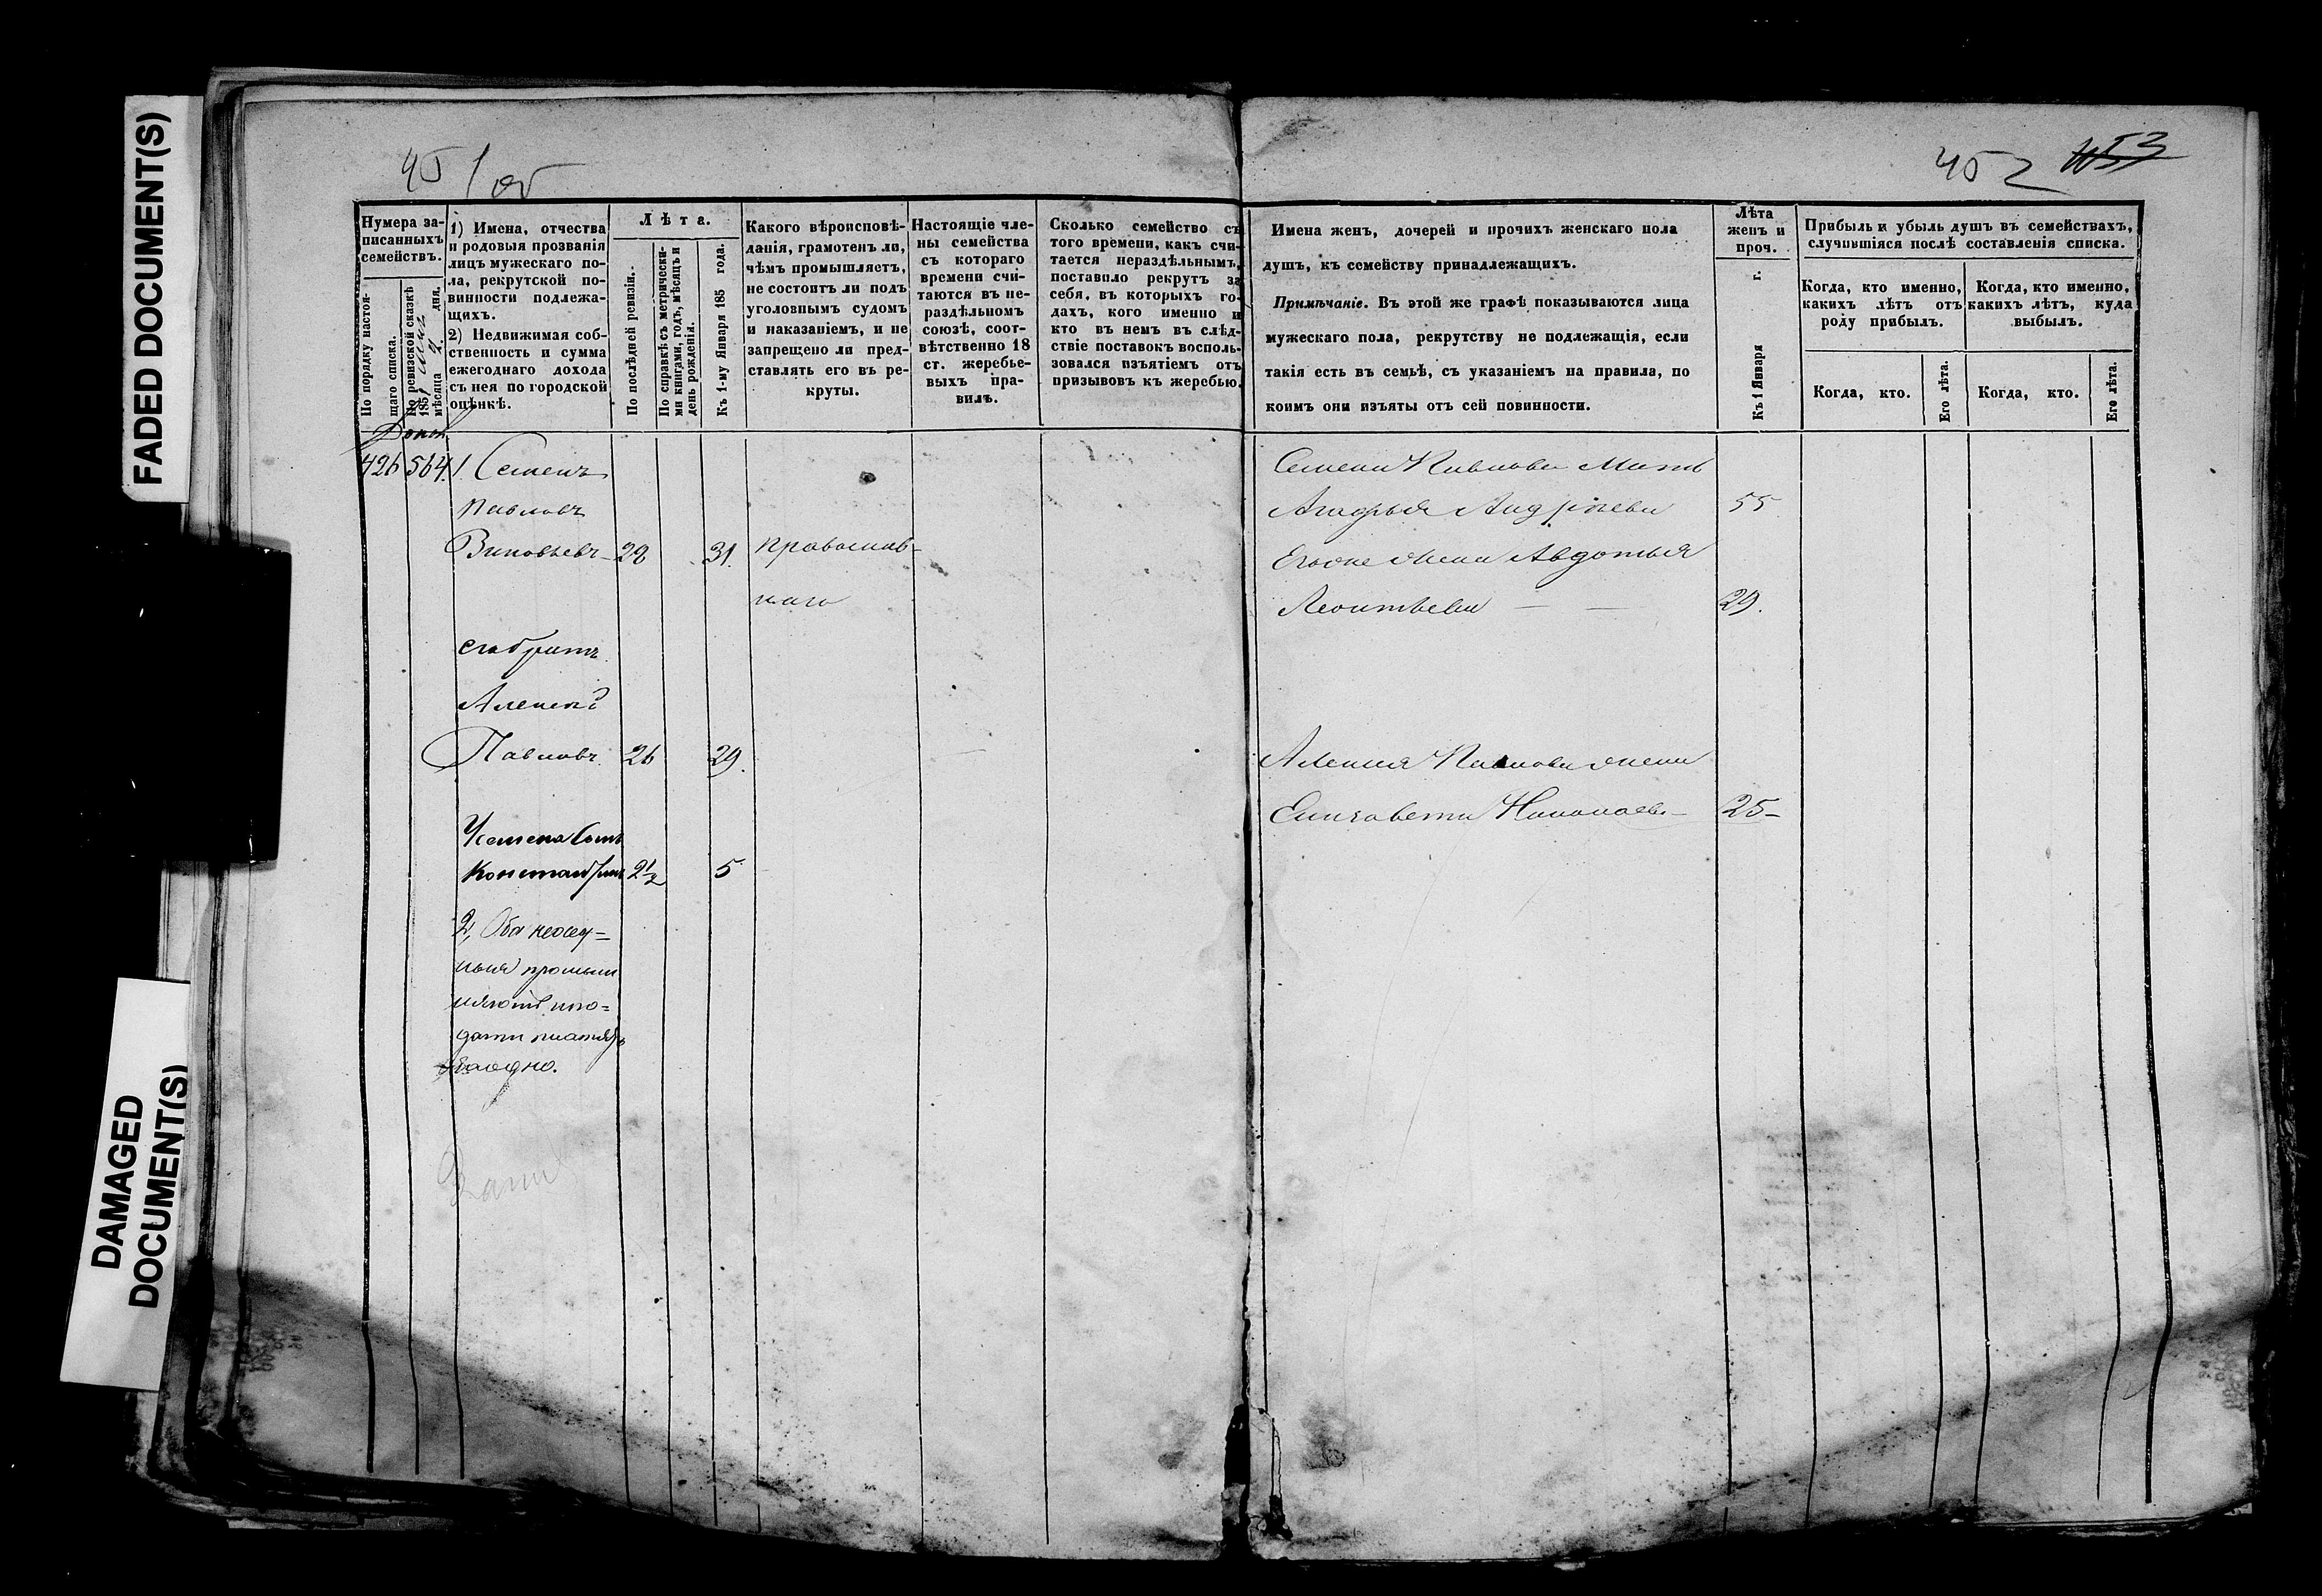 FADED DOCUMENT(S)
DAMAGED
DOCUMENT(S)
451 об
Нумера за-
писанныхъ
семействъ.
По порядку настоя-
щаго списка.
По ревизской сказкѣ
185
мѣсяца дня.
1) Имена, отчества
и родовыя прозванія
лицъ мужескаго по-
ла, рекрутской по-
винности подлежа-
щихъ.
2) Недвижимая соб-
ственность и сумма
ежегоднаго дохода
съ нея по городской
оцѣнкѣ.
Лѣта.
По послѣдней ревизіи.
По справкѣ съ метрически-
ми книгами, годъ, мѣсяцъ и
день рожденія.
Къ 1-му Января 185 года.
Какого вѣроисповѣ-
данія, грамотенъ ли,
чѣмъ промышляетъ,
не состоитъ ли подъ
уголовнымъ судомъ
и наказаніемъ, и не
запрещено ли пред-
ставлять его въ ре-
круты.
Настоящіе чле-
ны семейства
съ котораго
времени счи-
таются въ не-
раздѣльномъ
союзѣ, соот-
вѣтственно 18
ст. жеребье-
выхъ пра-
вилъ.
Сколько семейство съ
того времени, какъ счи-
тается нераздѣльнымъ,
поставило рекрутъ за
себя, въ которыхъ го-
дахъ, кого именно и
кто въ немъ въ слѣд-
ствіе поставокъ восполь-
зовался изъятіемъ отъ
призывовъ къ жеребью.
426 564. 1. Семенъ
Павловъ
28 31. православ-
наго
его братъ
Алексѣй
Павловъ 26 29.
У Семена сынъ
2½ 5
2, Оба
промыш
ляютъ по-
дати
452 453
Имена женъ, дочерей и прочихъ женскаго пола
душъ, къ семейству принадлежащихъ.
Примѣчаніе. Въ этой же графѣ показываются лица
мужескаго пола, рекрутству не подлежащія, если
такія есть въ семьѣ, съ указаніемъ на правила, по
коимъ они изъяты отъ сей повинности.
Лѣта
женъ и
проч.
Къ 1 Января г.
Прибыль и убыль душъ въ семействахъ,
случившіяся послѣ составленія списка.
Когда, кто именно,
какихъ лѣтъ отъ
роду прибылъ.
Когда, кто именно,
какихъ лѣтъ, куда
выбылъ.
Когда, кто.
Его лѣта.
Когда, кто.
Его лѣта.
Семена Павлова мать
Агафья Андрѣева 55
Его же жена Авдотья
Леонтьева 29.
Алексѣя Павлова жена
Елизавета Николаева 25